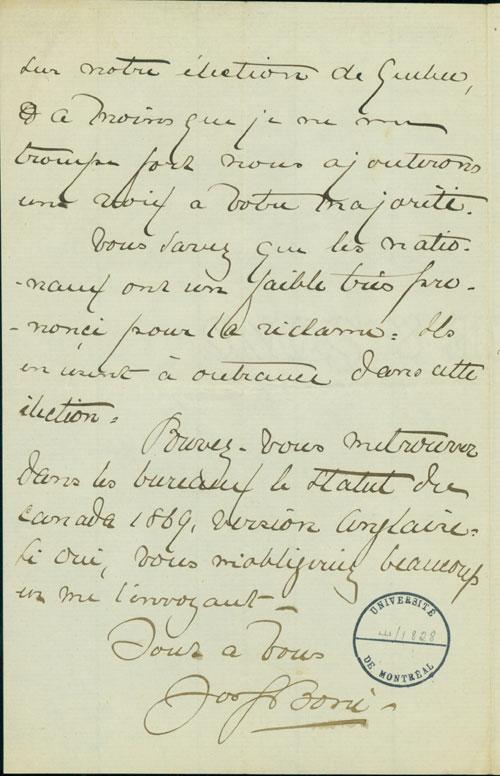 sur notre élection de Québec,
& à moins que je ne me
trompe fort nous ajouterons
une voix à votre majorité.
Vous savez que les natio-
-naux ont un faible très pro-
-noncé pour la réclame. Ils
en usent à outrance dans cette
élection.
Pouvez-vous me trouver
dans les bureaux le statut du
Canada 1869, version anglaise.
Si oui, vous m'obligeriez beaucoup
en me l'envoyant_
Tout à vous
UNIVERSITÉ
1828
DE MONTRÉAL